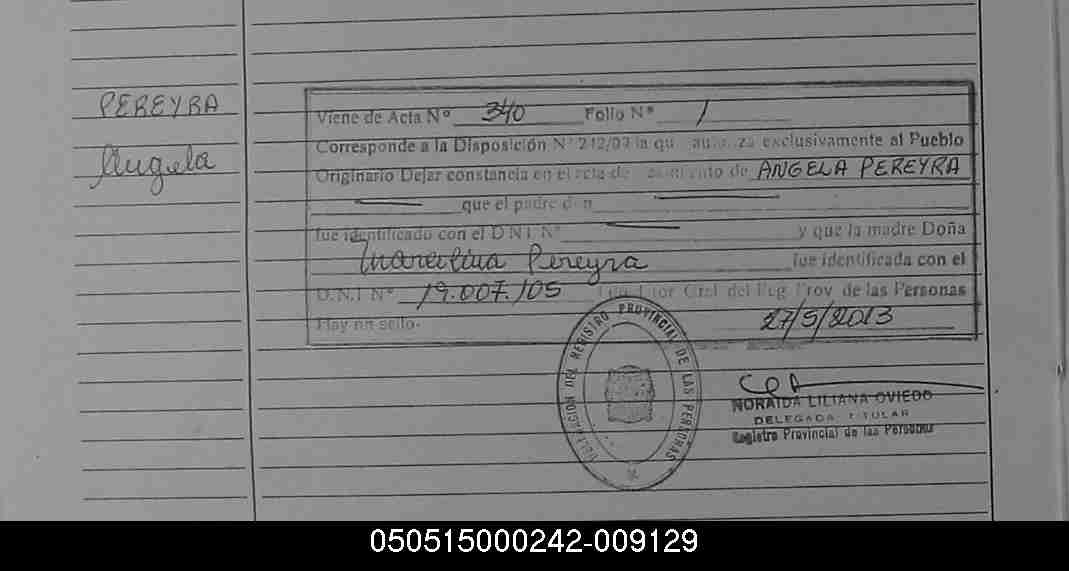 PEREYRA
Angela
Viene de Acta Nº 340 Folio Nº 1
Corresponde a la Disposición Nº 212/07 la qu auto za exclusivamente al Pueblo
Originario Dejar constancia en el acta de nacimiento de ANGELA PEREYRA
que el padre don
fue identificado con el D N I Nº y que la madre Doña
Marcelina Pereyra fue identificada con el
D.N.I Nº 19.007.105 Gral del Reg Prov de las Personas
Hay un sello-
27/5/2013
DELEGACION DEL REGISTRO PROVINCIAL DE LAS PERSONAS
NORAIDA LILIANA OVIEDO
DELEGADA TITULAR
Registro Provincial de las Personas
050515000242-009129